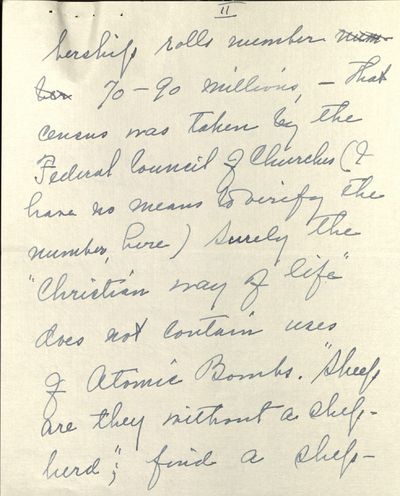 II
bership rolls number num-
ber 70-90 millions, - that
census was taken by the
Federal Council of Churches (I
have no means to verify the
number, here) Surely the
"Christian way of life"
does not contain uses
of Atomic Bombs. "Sheep
are they without a shep-
herd"; find a shep-